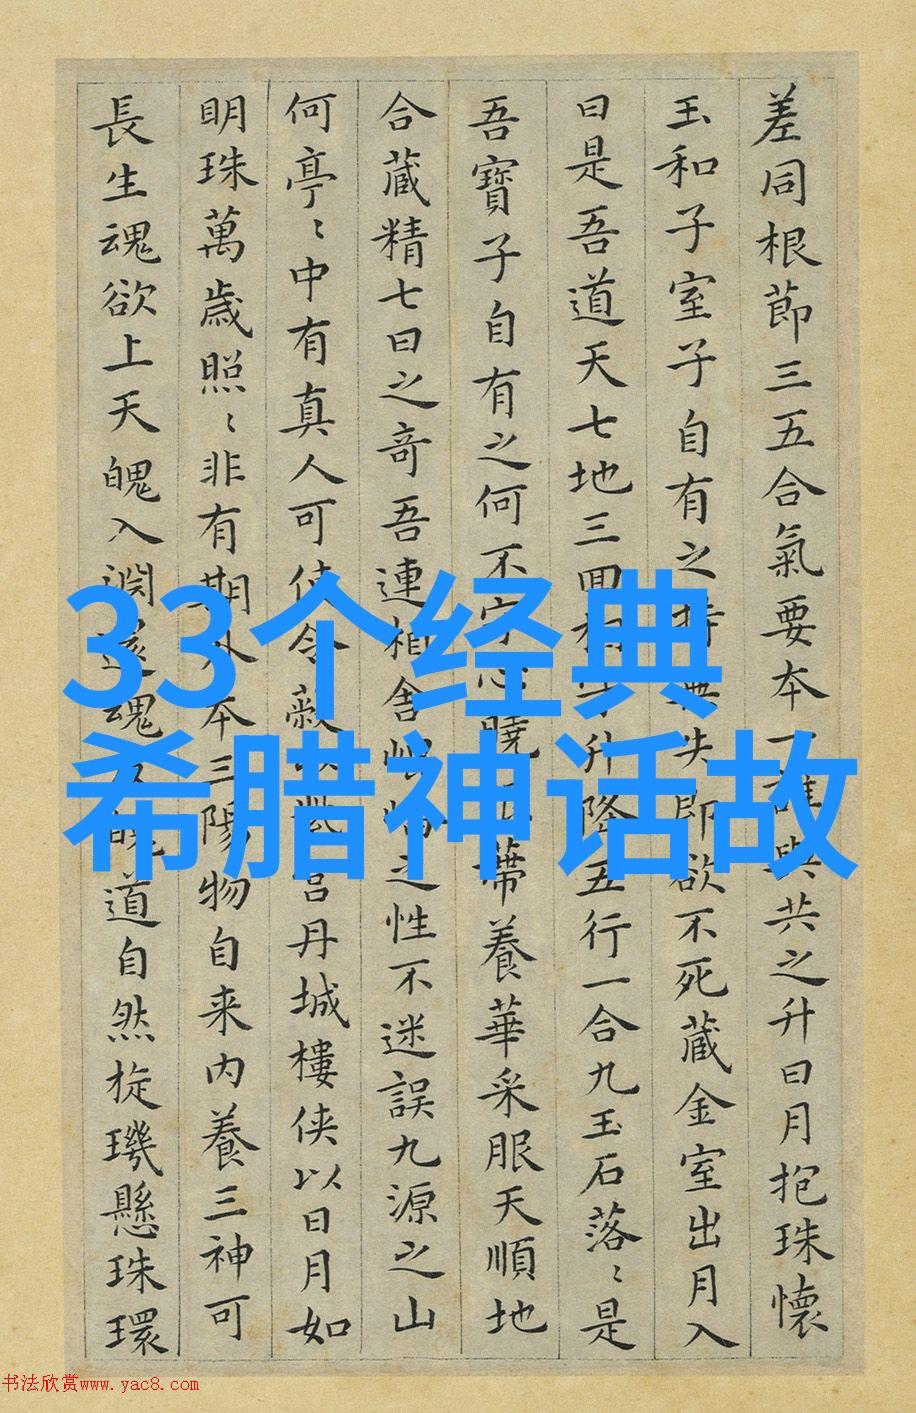 差同根節三五合氣要本一誰與共之升日月抱珠懷
玉和子室子自有之持無失即欲不死藏金室出月入
日是吾道天七地三回相守升降五行一合九玉石落〻是
吾寶子自有之何不守心曉蒂養華采服天順地
合藏精七日之奇吾連相舍之性不迷誤九源之山
何亭〻中有真人可使令蔽宮丹城樓俠以日月如
明珠萬歲照〻非有期外本三陽物自来内養三神可
長生魂欲上天魄入淵還魂魄道自然旋璣懸珠環
33个经典
希腊神话故
书法欣赏www.yac8.com